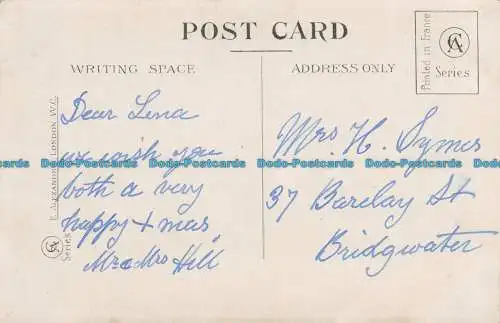 POST CARD
WRITING SPACE
ADDRESS ONLY
Printed in France
CA
Series
Dear Lena
we wish you
both a very
happy + mas
Mr & Mrs Hill
Mrs. H. Symes
37 Barclay St
Bridgwater
E. ALEXANDRE, LONDON W.C.
CA
Series
Dodo-Postcards Dodo-Postcards Dodo-Postcards Dodo-Postcards